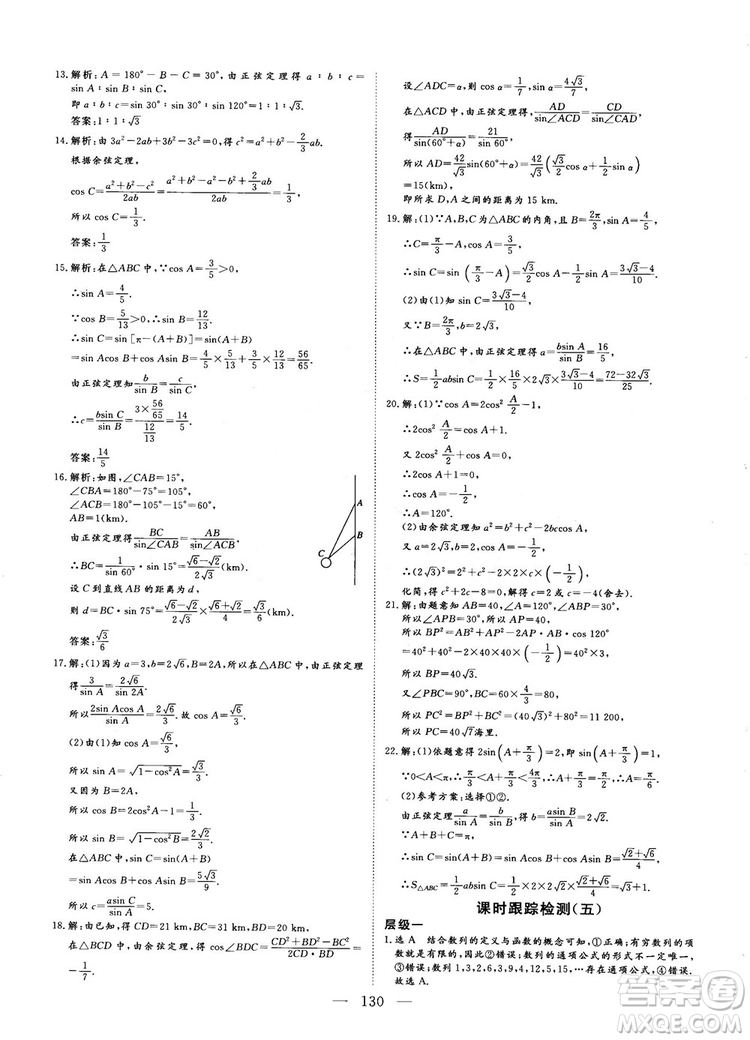 13.解析:A=180°-B-C=30°,由正弦定理得 a∶b∶c=
sin A∶sin B∶sin C,
即 a∶b∶c=sin 30°∶sin 30°∶sin 120°=1∶1∶√3.
答案:1∶1∶√3
14.解析:由 3a²-2ab+3b²-3c²=0,得 c²=a²+b²-2/3ab.
根据余弦定理,
cos C=(a²+b²-c²)/2ab=(a²+b²-a²-b²+2/3ab)/2ab=1/3,
所以 cos C=1/3.
答案:1/3
15.解析:在△ABC 中,∵cos A=3/5>0,
∴sin A=4/5.
∵cos B=5/13>0,∴sin B=12/13.
∴sin C=sin [π-(A+B)]=sin(A+B)
=sin Acos B+cos Asin B=4/5×5/13+3/5×12/13=56/65.
由正弦定理知 b/sin B=c/sin C,
∴c=bsin C/sin B=(3×56/65)/(12/13)=14/5.
答案:14/5
16.解析:如图,∠CAB=15°,
∠CBA=180°-75°=105°,
∠ACB=180°-105°-15°=60°,
AB=1(km).
由正弦定理得 BC/sin∠CAB=AB/sin∠ACB,
∴BC=1/sin 60°·sin 15°=(√6-√2)/2√3(km).
设 C 到直线 AB 的距离为 d,
则 d=BC·sin 75°=(√6-√2)/2√3×(√6+√2)/4=√3/6(km).
答案:√3/6
A
B
C
17.解:(1)因为 a=3,b=2√6,B=2A,所以在△ABC 中,由正弦定理
得 3/sin A=2√6/sin 2A.
所以 2sin Acos A/sin A=2√6/3.故 cos A=√6/3.
(2)由(1)知 cos A=√6/3,
所以 sin A=√(1-cos²A)=√3/3.
又因为 B=2A,
所以 cos B=2cos²A-1=1/3.
所以 sin B=√(1-cos²B)=2√2/3.
在△ABC 中,sin C=sin(A+B)
=sin Acos B+cos Asin B=5√3/9.
所以 c=asin C/sin A=5.
18.解:如题图所示,在△CBD 中,cos∠BDC=(CD²+BD²-BC²)/(2CD·BD)=
-1/7.
设∠ADC=α,则 cos α=1/7,sin α=4√3/7.
在△ACD 中,由正弦定理得 AD/sin∠ACD=CD/sin∠CAD,
得 AD/sin(60°+α)=21/sin 60°,
所以 AD=42/√3sin(60°+α)=42/√3(√3/2cos α+1/2sin α)
=15(km).
即所求 D,A 之间的距离为 15(km).
19.解:(1)∵A,B,C 为△ABC 的内角,且 B=2π/3,sin A=4/5,
∴C=π/3-A,cos A=3/5.
∴sin C=sin(π/3-A)=√3/2cos A-1/2sin A=(3√3-4)/10.
(2)由(1)知 sin A=4/5,sin C=(3√3-4)/10.
又∵B=2π/3,b=2√3,∴由正弦定理得 a=bsin A/sin B=16/5,
∴S=1/2absin C=1/2×16/5×2√3×(3√3-4)/10=(72-32√3)/25.
20.解:(1)∵cos A=2cos²A/2-1,
∴2cos²A/2=cos A+1.
又 2cos²A/2+cos A=0,∴2cos A+1=0.
∴cos A=-1/2.
∴A=120°.
(2)由余弦定理知 a²=b²+c²-2bccos A,
又 a=2√3,b=2,cos A=-1/2,
∴(2√3)²=2²+c²-2×2×c×(-1/2).
化简,得 c²+2c-8=0,解得 c=2 或 c=-4(舍去).
21.解:由题意知 AB=40,∠A=120°,∠ABP=30°,
所以∠APB=30°,所以 AP=40,
所以 BP²=AB²+AP²-2AP·AB·cos 120°
=40²+40²-2×40×40×(-1/2)=40²×3,
所以 BP=40√3.
又∠PBC=90°,BC=80,
所以 PC²=BP²+BC²=(40√3)²+80²=11 200,
所以 PC=40√7海里.
22.解:(1)依题意得 2sin(A+π/3)=2,即 sin(A+π/3)=1.
∵0<A<π,∴π/3<A+π/3<4π/3.∴A+π/3=π/2.∴A=π/6.
(2)参考方案:选择①②.
由正弦定理 a/sin A=b/sin B,得 b=asin B/sin A=2√2.
∵A+B+C=π,
∴sin C=sin(A+B)=sin Acos B+cos Asin B=(√2+√6)/4,
∴S△ABC=1/2absin C=1/2×2×2√2×(√2+√6)/4=√3+1.
课时跟踪检测(五)
层级一
1.选 A 结合数列的定义与函数的概念可知,①正确;有穷数列的项
数就是有限的,因此②错误;数列的通项公式的形式不一定唯一,
③错误;数列 1,3,2,6,3,9,4,12,5,15,…存在通项公式,④错误.
故选 A.
— 130 —
答案圈
MXQE.COM